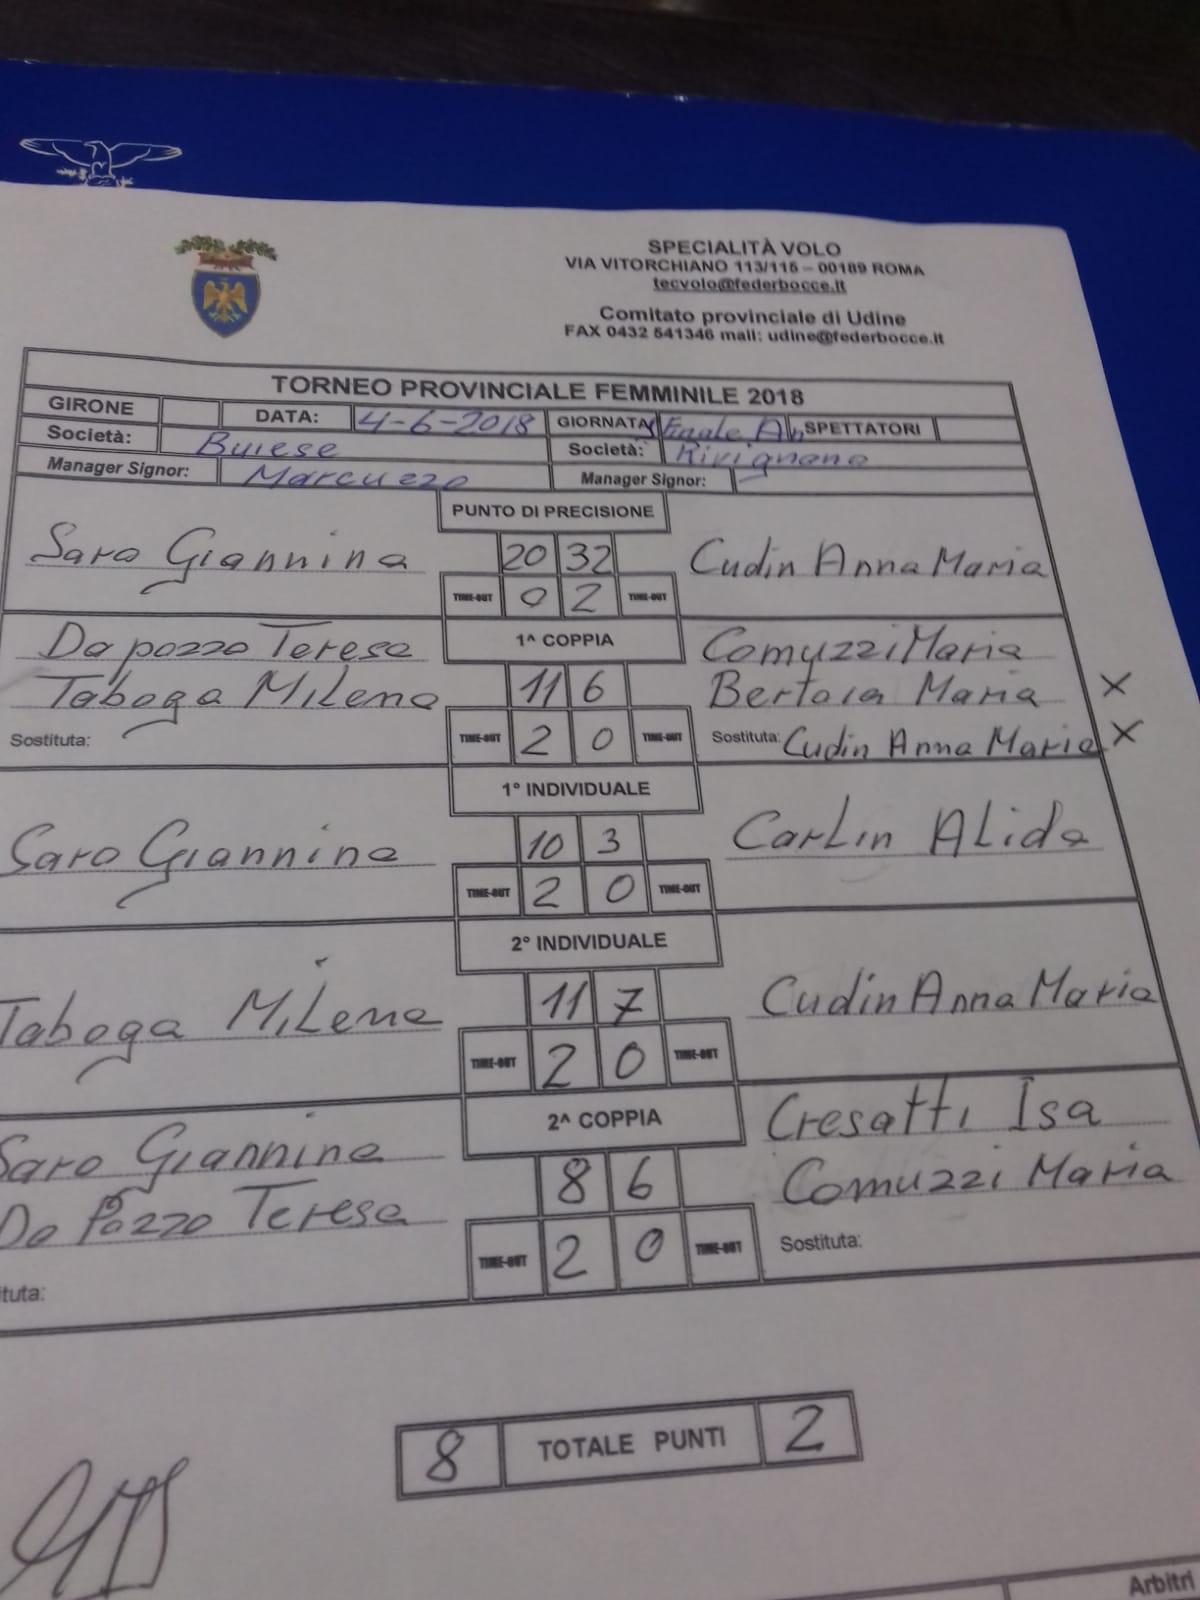 SPECIALITÀ VOLO
VIA VITORCHIANO 113/115 – 00189 ROMA
tecvolo@federbocce.it
Comitato provinciale di Udine
FAX 0432 541346 mail: udine@federbocce.it
TORNEO PROVINCIALE FEMMINILE 2018
GIRONE DATA: 4-6-2018 GIORNATA SPETTATORI
Società: Buiese Società: Rivignano
Manager Signor: Marcuzzo Manager Signor:
PUNTO DI PRECISIONE
Saro Giannina 20 32 Cudin Anna Maria
TIME-OUT 0 2 TIME-OUT
Da pozzo Teresa 1^ COPPIA Comuzzi Maria
Taboga Milena 11 6 Bertoia Maria X
Sostituta: TIME-OUT 2 0 TIME-OUT Sostituta: Cudin Anna Maria X
1° INDIVIDUALE
Saro Giannina 10 3 Carlin Alida
TIME-OUT 2 0 TIME-OUT
2° INDIVIDUALE
Taboga Milena 11 7 Cudin Anna Maria
TIME-OUT 2 0 TIME-OUT
2^ COPPIA Cresatti Isa
Saro Giannina 8 6 Comuzzi Maria
Da Pozzo Teresa
TIME-OUT 2 0 TIME-OUT Sostituta:
tuta:
8 TOTALE PUNTI 2
Arbitri